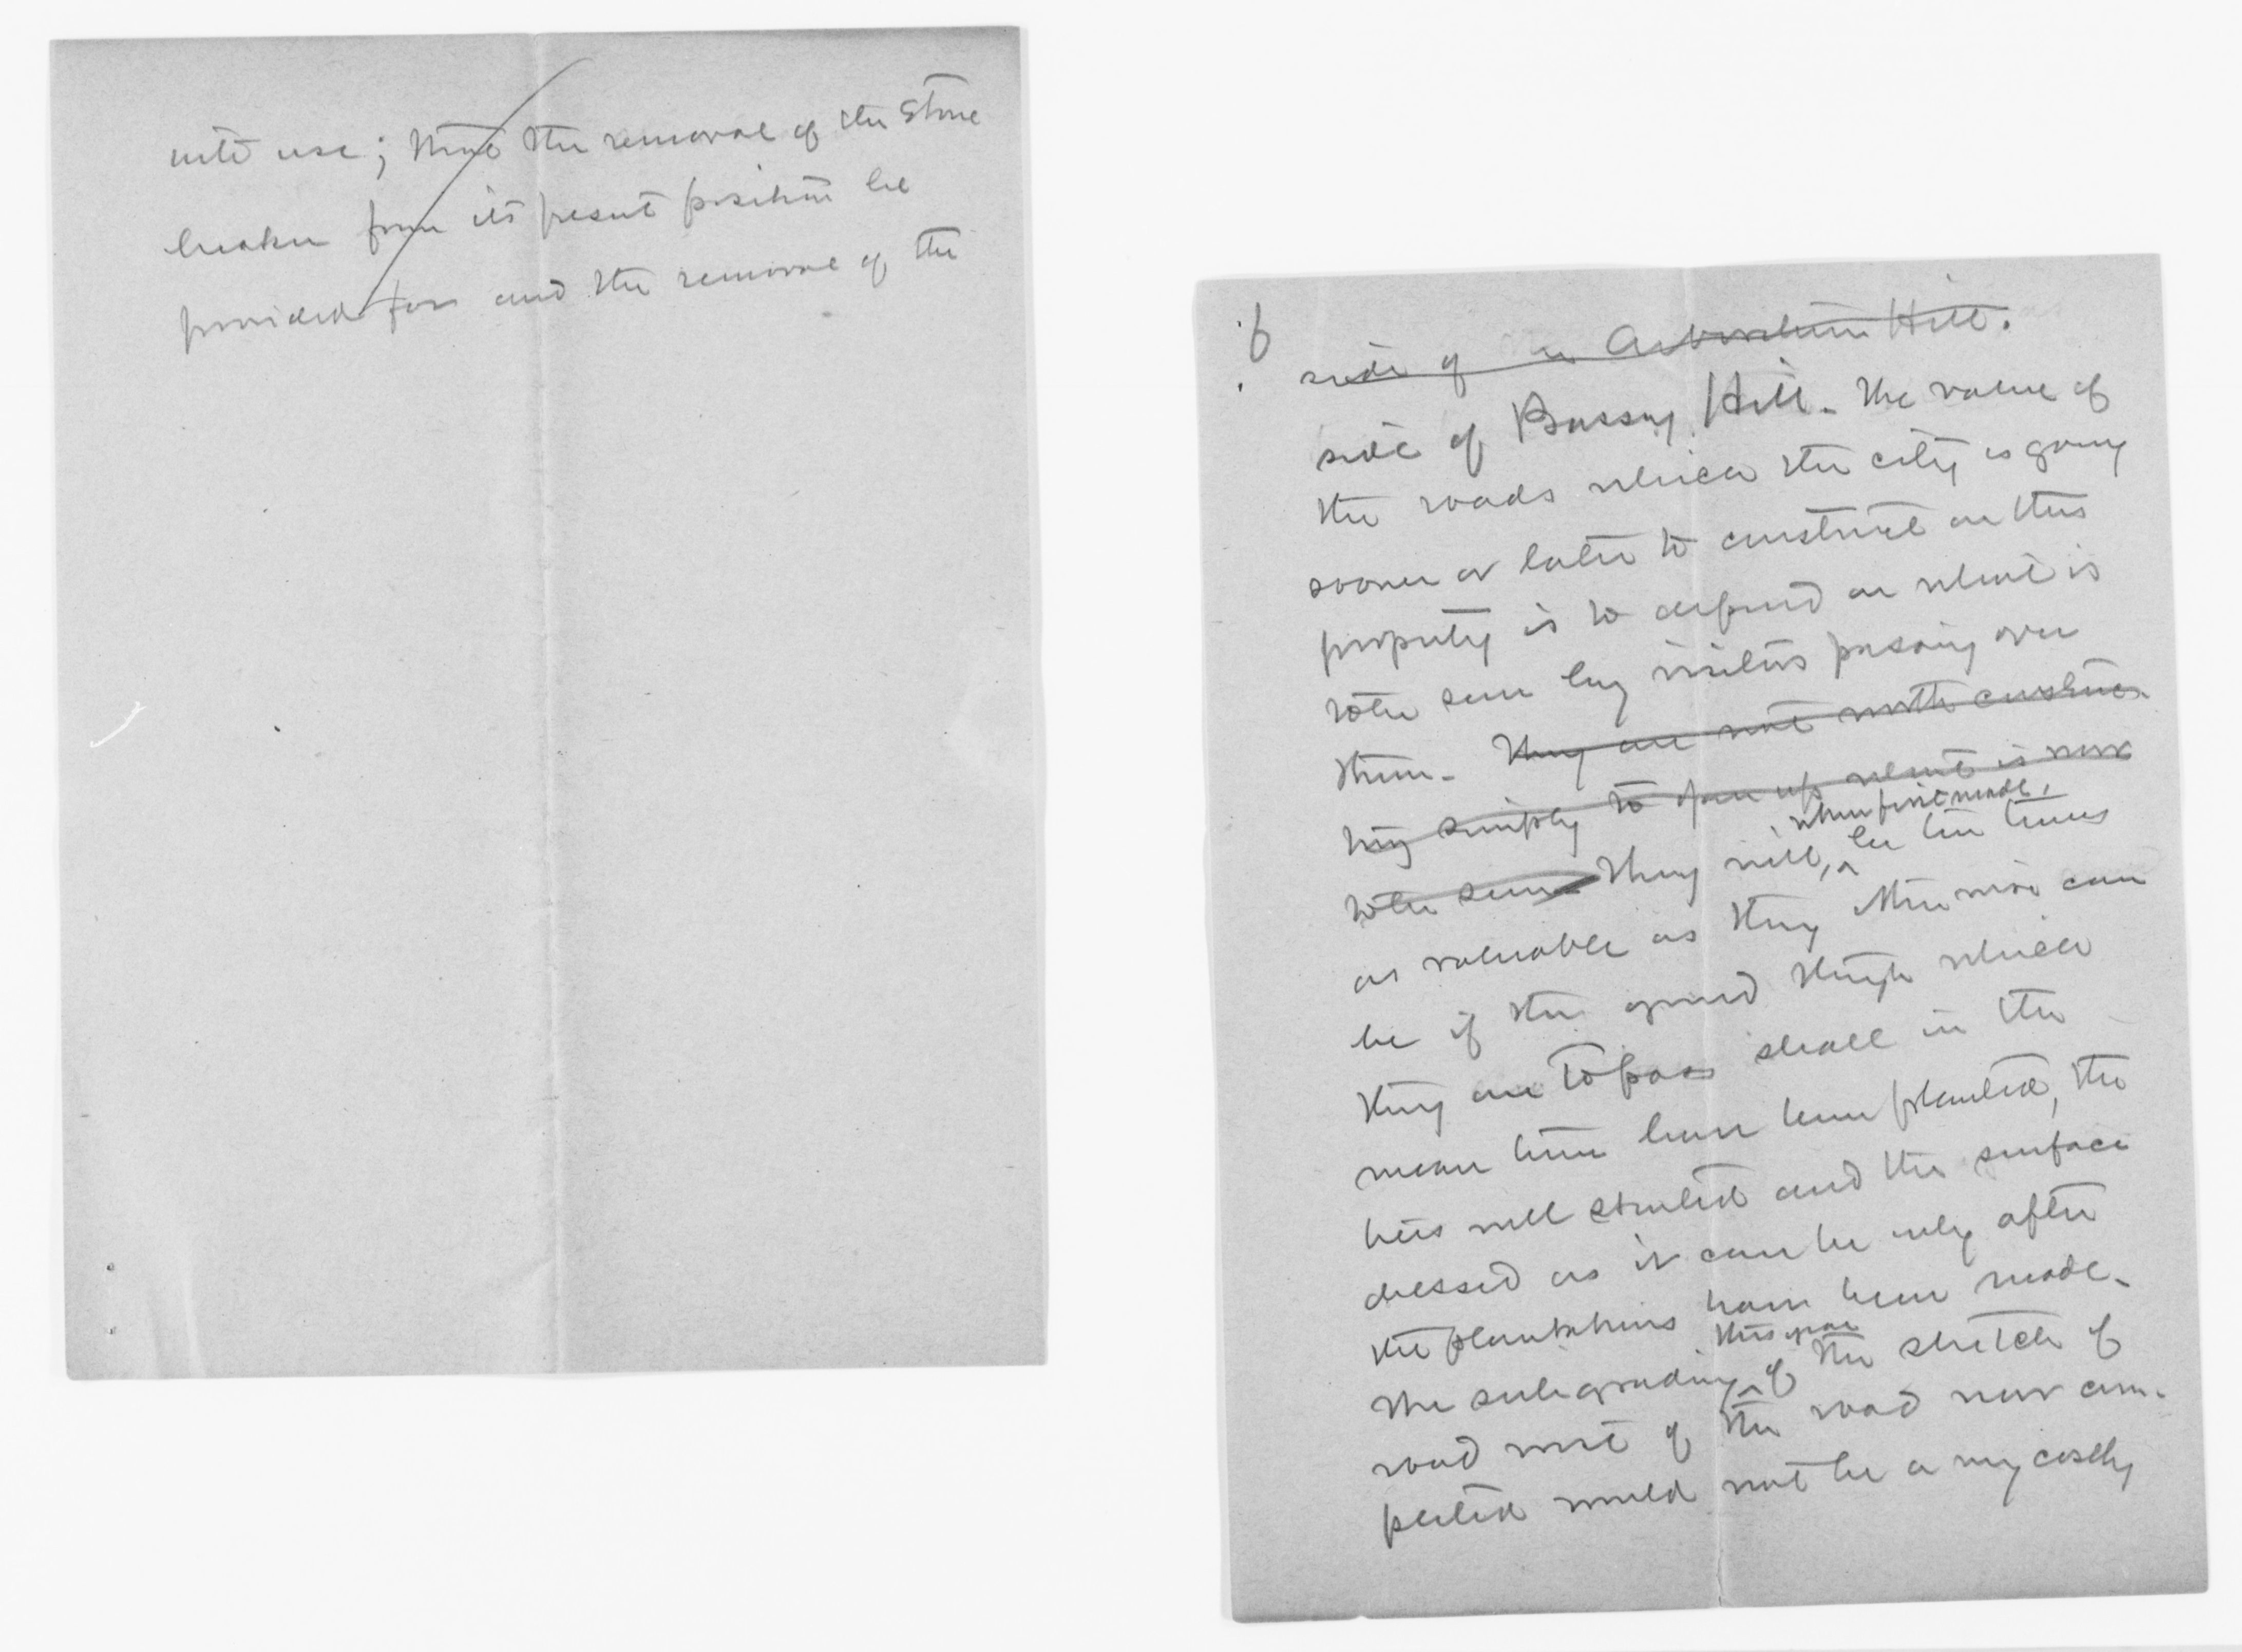 into use; that the removal of the Stone
breaker from its present position be
provided for and the removal of the
6
side of Arboretum Hill.
side of Bussey Hill. The value of
the roads which the city is going
sooner or later to construct on this
property is to depend on what is
to be seen by visitors passing over
them. They are not worth construc-
ting simply to open up what is now
when first made,
to be seen They will, be ten times
as valuable as they otherwise can
be if the ground through which
they are to pass shall in the
mean time have been planted, the
trees well started and the surface
dressed as it can be only after
the plantations have been made.
this year
The subgrading of the stretch of
road west of the road now com-
pleted would not be a very costly